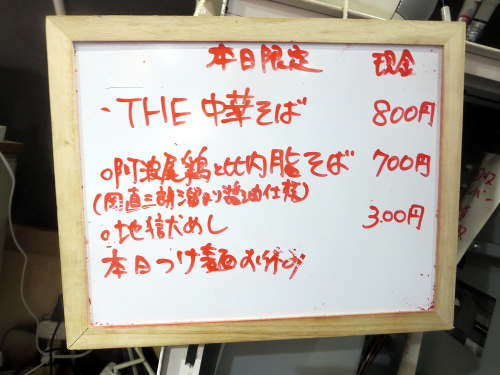 本日限定 現金
・THE 中華そば 800円
○阿波尾鶏と比内脂そば 700円
(岡直三郎溜より醤油仕様)
○地獄犬めし 300円
本日つけ麺お休み